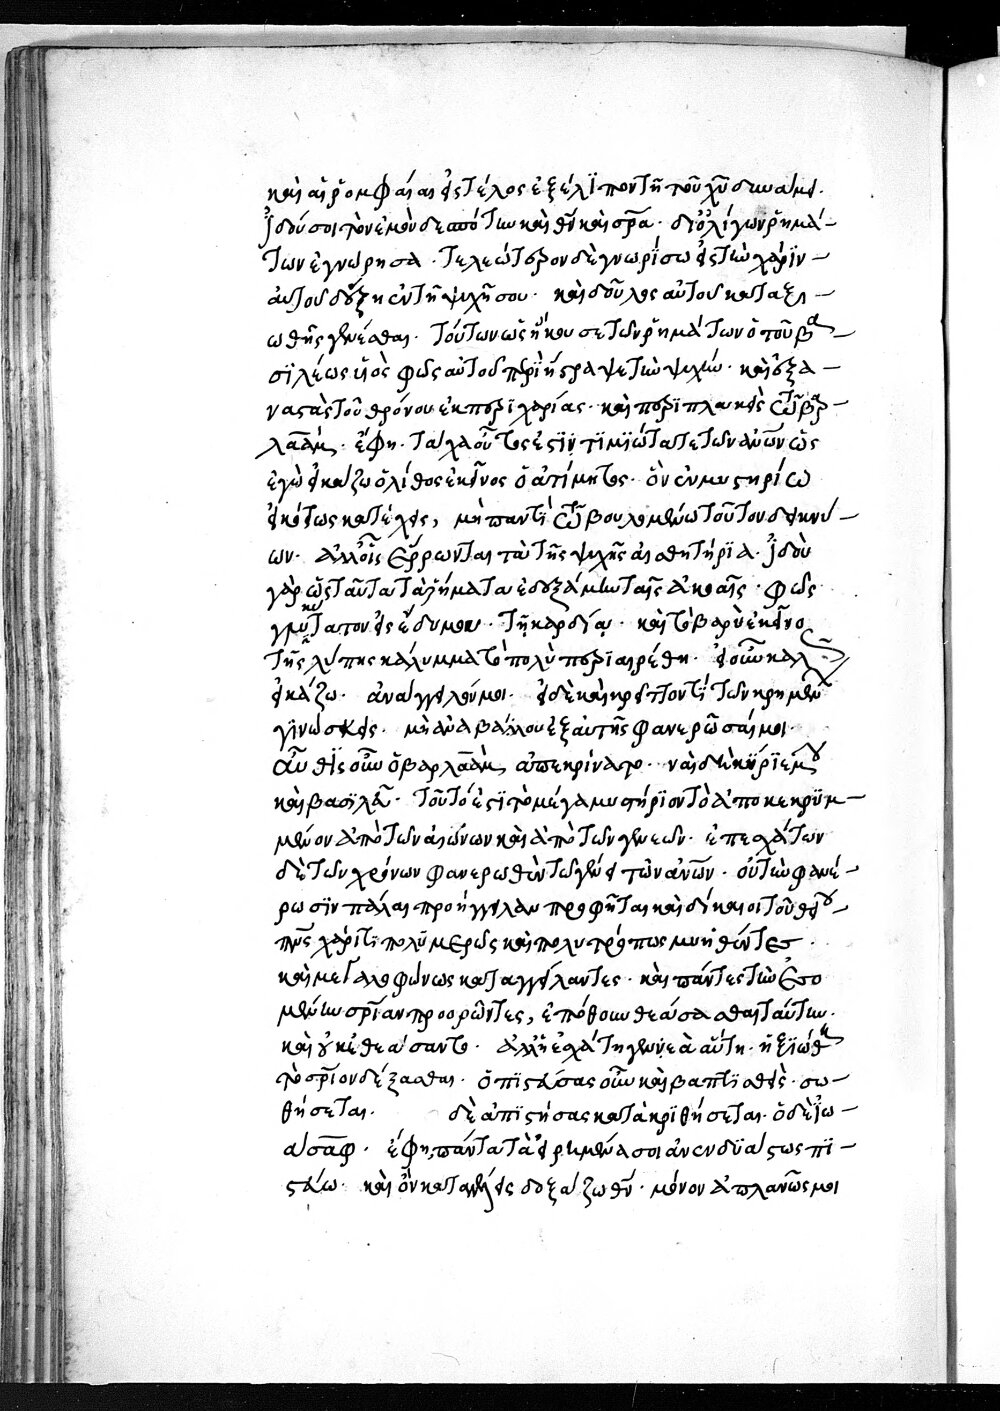 καὶ αἱ ῥομφαίαι εἰς τέλος ἐξέλϊπον τῇ τοῦ χῦ δυνάμει.
Ἰδού σοι τὸν ἐμὸν δεσπότην καὶ θν̄ καὶ σρ̄α· δι' ὀλίγων ῥημά–
των ἐγνώρησα· τελεώτερον δὲ γνωρΐσεις τὴν χάρϊν –
αὐτοῦ δύξη ἐν τῇ ψυχῇ σου· καὶ δοῦλος αὐτοῦ καταξι –
ωθῇς γενέσθαι. Τούτων ὡς ἤκουσε τῶν ῥημάτων ὁ τοῦ βα –
σϊλέως ϋἱὸς φῶς αὐτοῦ περιήστραψε τὴν ψυχήν· καὶ ἐξα –
ναστὰς τοῦ θρόνου ἐκ περϊχαρίας· καὶ περϊπλακεὶς τῶ βαρ –
λαὰμ· ἔφη· τάχα οὗτος ἐστϊν τϊμϊώτατε τῶν ἀνω̄ν ὡς
ἐγὼ εἰκάζω ὁ λίθος ἐκεῖνος ὁ ἀτίμητος· ὃν ἐν μυστηρίω
εἰκότως κατέχεις, μὴ παντὶ τῶ βουλομένω τοῦτον δεικνύ –
ων· ἀλλ' οἷς ἔρρωνται τὰ τῆς ψυχῆς αἰσθητήρϊα. Ἰδοὺ
γὰρ ὡς ταῦτα τὰ ῥήματα ἐδυξάμην ταῖς ἀκοαῖς· φῶς
γλυκύτατον εἰσέδυ μου τῇ καρδία· καὶ τὸ βαρὺ ἐκεῖνο
τῆς λύπης κάλυμμα τὸ πολὺ περϊαιρέθη. εἰ οὖν καλῶς
εἰκάζω· ἀνάγγειλόν μοι· εἰ δὲ καὶ κρεῖττόν τι τῶν εἰρημένων
γϊνώσκεις· μὴ ἀναβάλλου ἐξ αὐτῆς φανερῶσαί μοι·
αὖθϊς οὖν ὁ βαρλαὰμ ἀπεκρίνατο· ναὶ δὴ κύρϊέ μου
καὶ βασϊλεῦ· τοῦτό ἐστϊ τὸ μέγα μυστήρϊον τὸ ἀποκεκρϋμ –
μένον ἀπὸ τῶν αἰώνων καὶ ἀπὸ τῶν γενεῶν· ἐπ' ἐσχάτων
δὲ τῶν χρόνων φανερωθὲν τῶ γένει τῶν ἀνω̄ν· οὗ τὴν φανέ –
ρωσϊν πάλαι προήγγειλαν προφῆται καὶ δίκαιοι τοῦ θείου –
πνς χάρϊτϊ πολϋμερῶς καὶ πολυτρόπως μυηθέντες.
καὶ μεγαλοφώνως καταγγείλαντες· καὶ πάντες τὴν ἐσο
μένην σρ̄ίαν προορῶντες, ἐπόθουν θεάσασθαι ταύτην.
καὶ οὐκ ἐθεάσαντο· ἀλλ' ἡ ἐσχάτη γενεὰ αὕτη· ἠξϊώθη
τὸ σρ̄ϊον δέξασθαι. ὁ πϊστεύσας οὖν καὶ βαπτϊσθεὶς· σω –
θήσεται. δὲ ἀπϊστήσας κατακρϊθήσεται. ὁ δὲ ἰω –
άσαφ· ἔφη, πάντα τὰ εἰρημένα σοι ἀνενδϋάστως πϊ –
στεύω· καὶ ὃν καταγγέλεις δοξάζω θν̄· μόνον ἀπλανῶς μοι